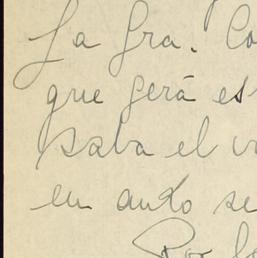 La Sra. Co
que será es
saba el v
en auto se
Por lo